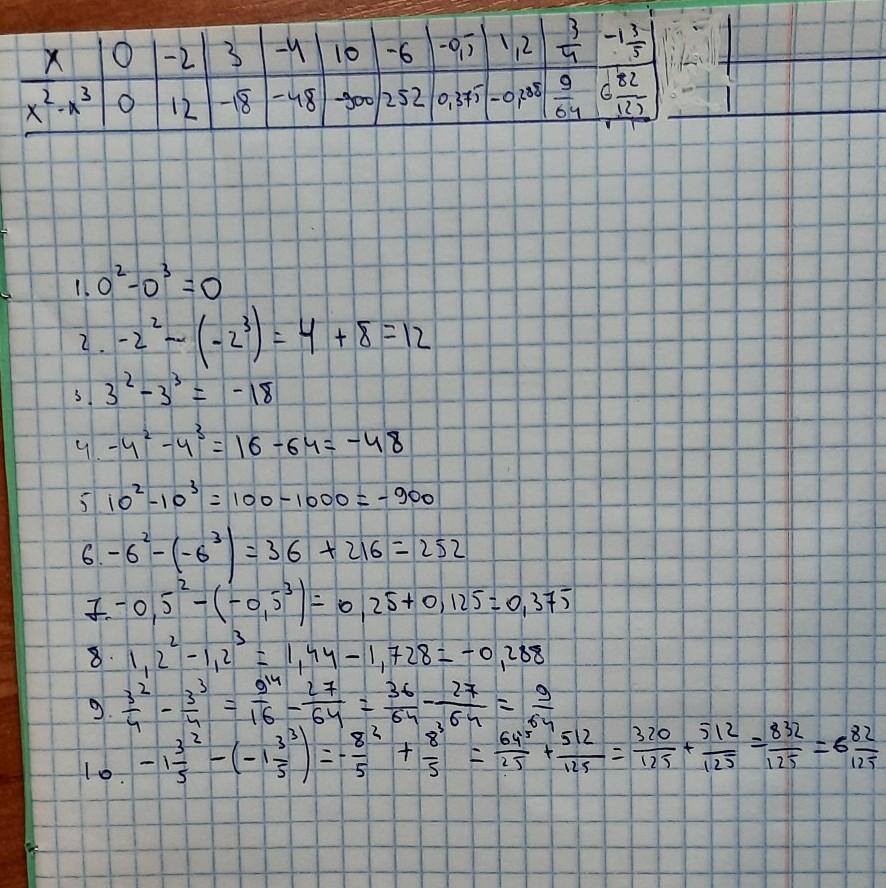 x 0 -2 3 -4 10 -6 -0,5 1,2 3/4 -1 3/5
x² - x³ 0 12 -18 -48 -900 252 0,375 -0,288 9/64 6 82/125
1. 0² - 0³ = 0
2. -2² - (-2³) = 4 + 8 = 12
3. 3² - 3³ = -18
4. -4² - 4³ = 16 - 64 = -48
5 10² - 10³ = 100 - 1000 = -900
6. -6² - (-6³) = 36 + 216 = 252
7. -0,5² - (-0,5³) = 0,25 + 0,125 = 0,375
8. 1,2² - 1,2³ = 1,44 - 1,728 = -0,288
9. 3²/4 - 3³/4 = 9^(14)/16 - 27/64 = 36/64 - 27/64 = 9/64
10. -1 3²/5 - (-1 3³/5) = -8²/5 + 8³/5 = 64⁵/25 + 512/125 = 320/125 + 512/125 = 832/125 = 6 82/125